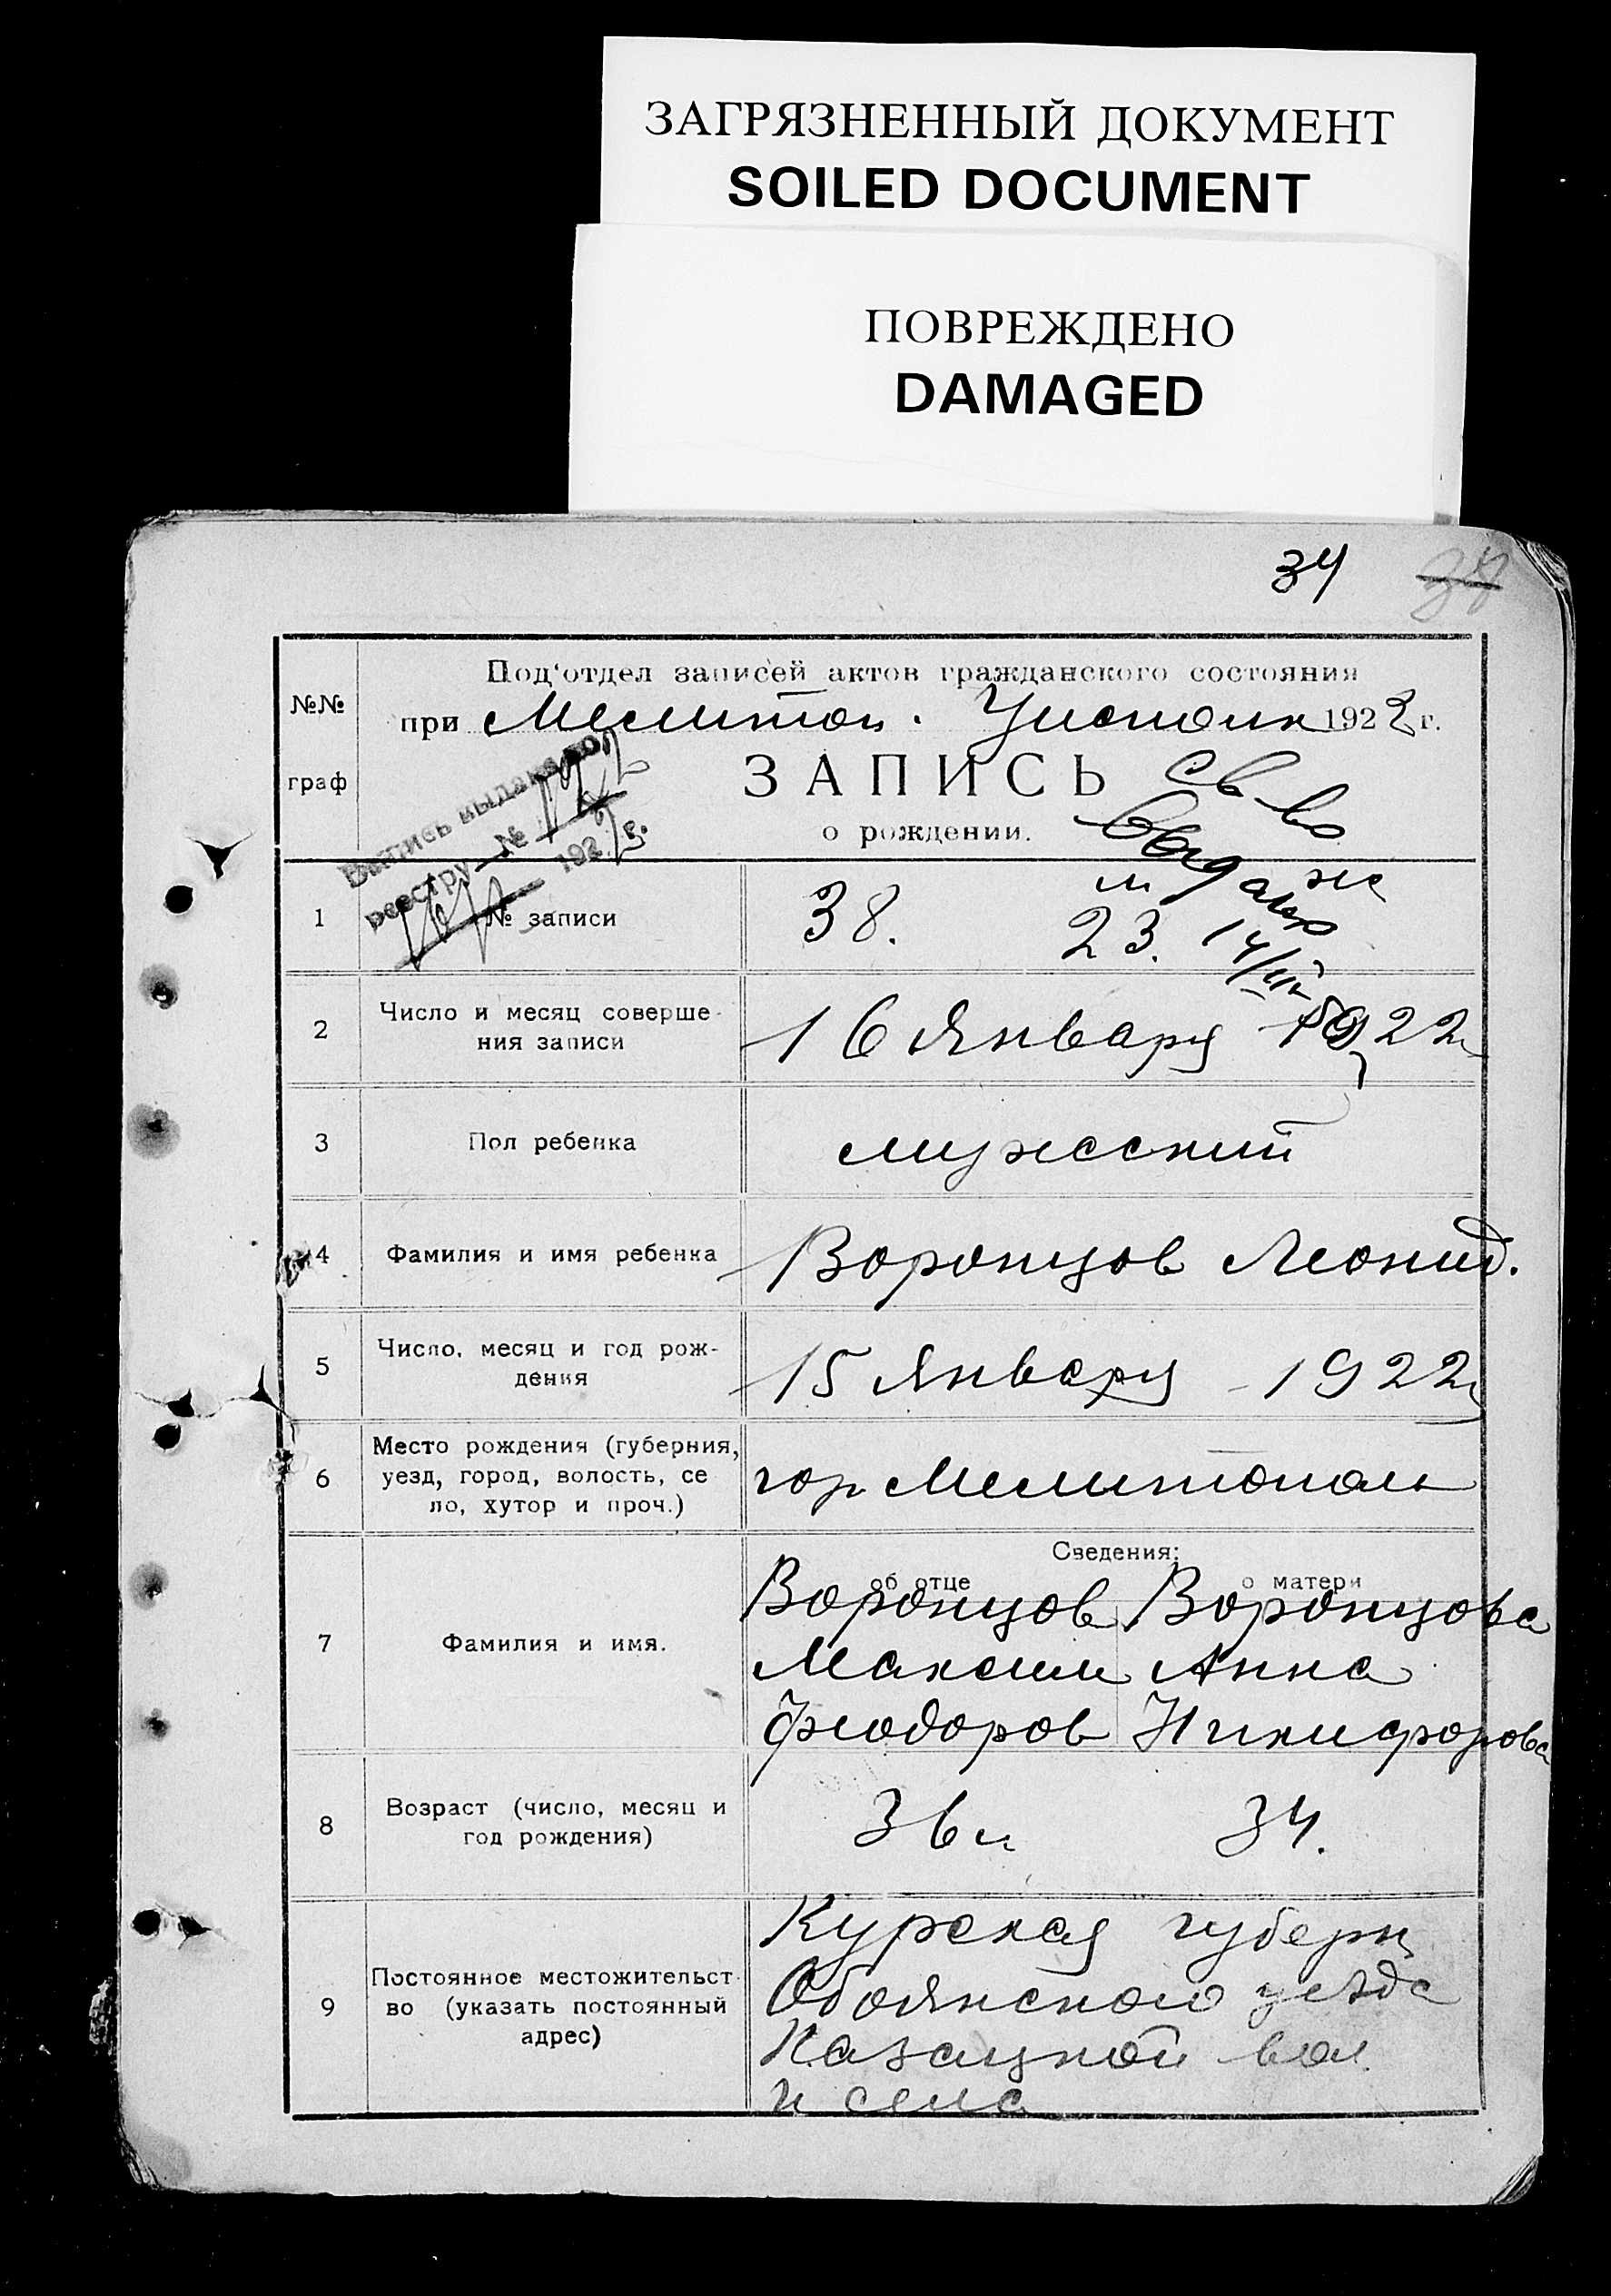 ЗАГРЯЗНЕННЫЙ ДОКУМЕНТ
SOILED DOCUMENT
ПОВРЕЖДЕНО
DAMAGED
34
№№
граф
Под‘отдел записей актов гражданского состояния
при Мелитоп. Уисполк 1922 г.
ЗАПИСЬ
о рождении.
Св во
выдано
14/III
Выпись выдана по
реестру №
192 г.
1 № записи 38. м ж 23.
2 Число и месяц соверше-
ния записи
16 Января 1922
3 Пол ребенка мужеский
4 Фамилия и имя ребенка Воронцов Леонид.
5 Число, месяц и год рож-
дения
15 Января 1922
6 Место рождения (губерния,
уезд, город, волость, се
ло, хутор и проч.)
гор Мелитополь
Сведения:
об отце о матери
7 Фамилия и имя.
Воронцов Воронцова
Максим Анна
Феодоров Никифорова
8 Возраст (число, месяц и
год рождения)
36 л 34.
9 Постоянное местожительст
во (указать постоянный
адрес)
Курская губерн
Обоянского уезда
Казацкой вол.
и села